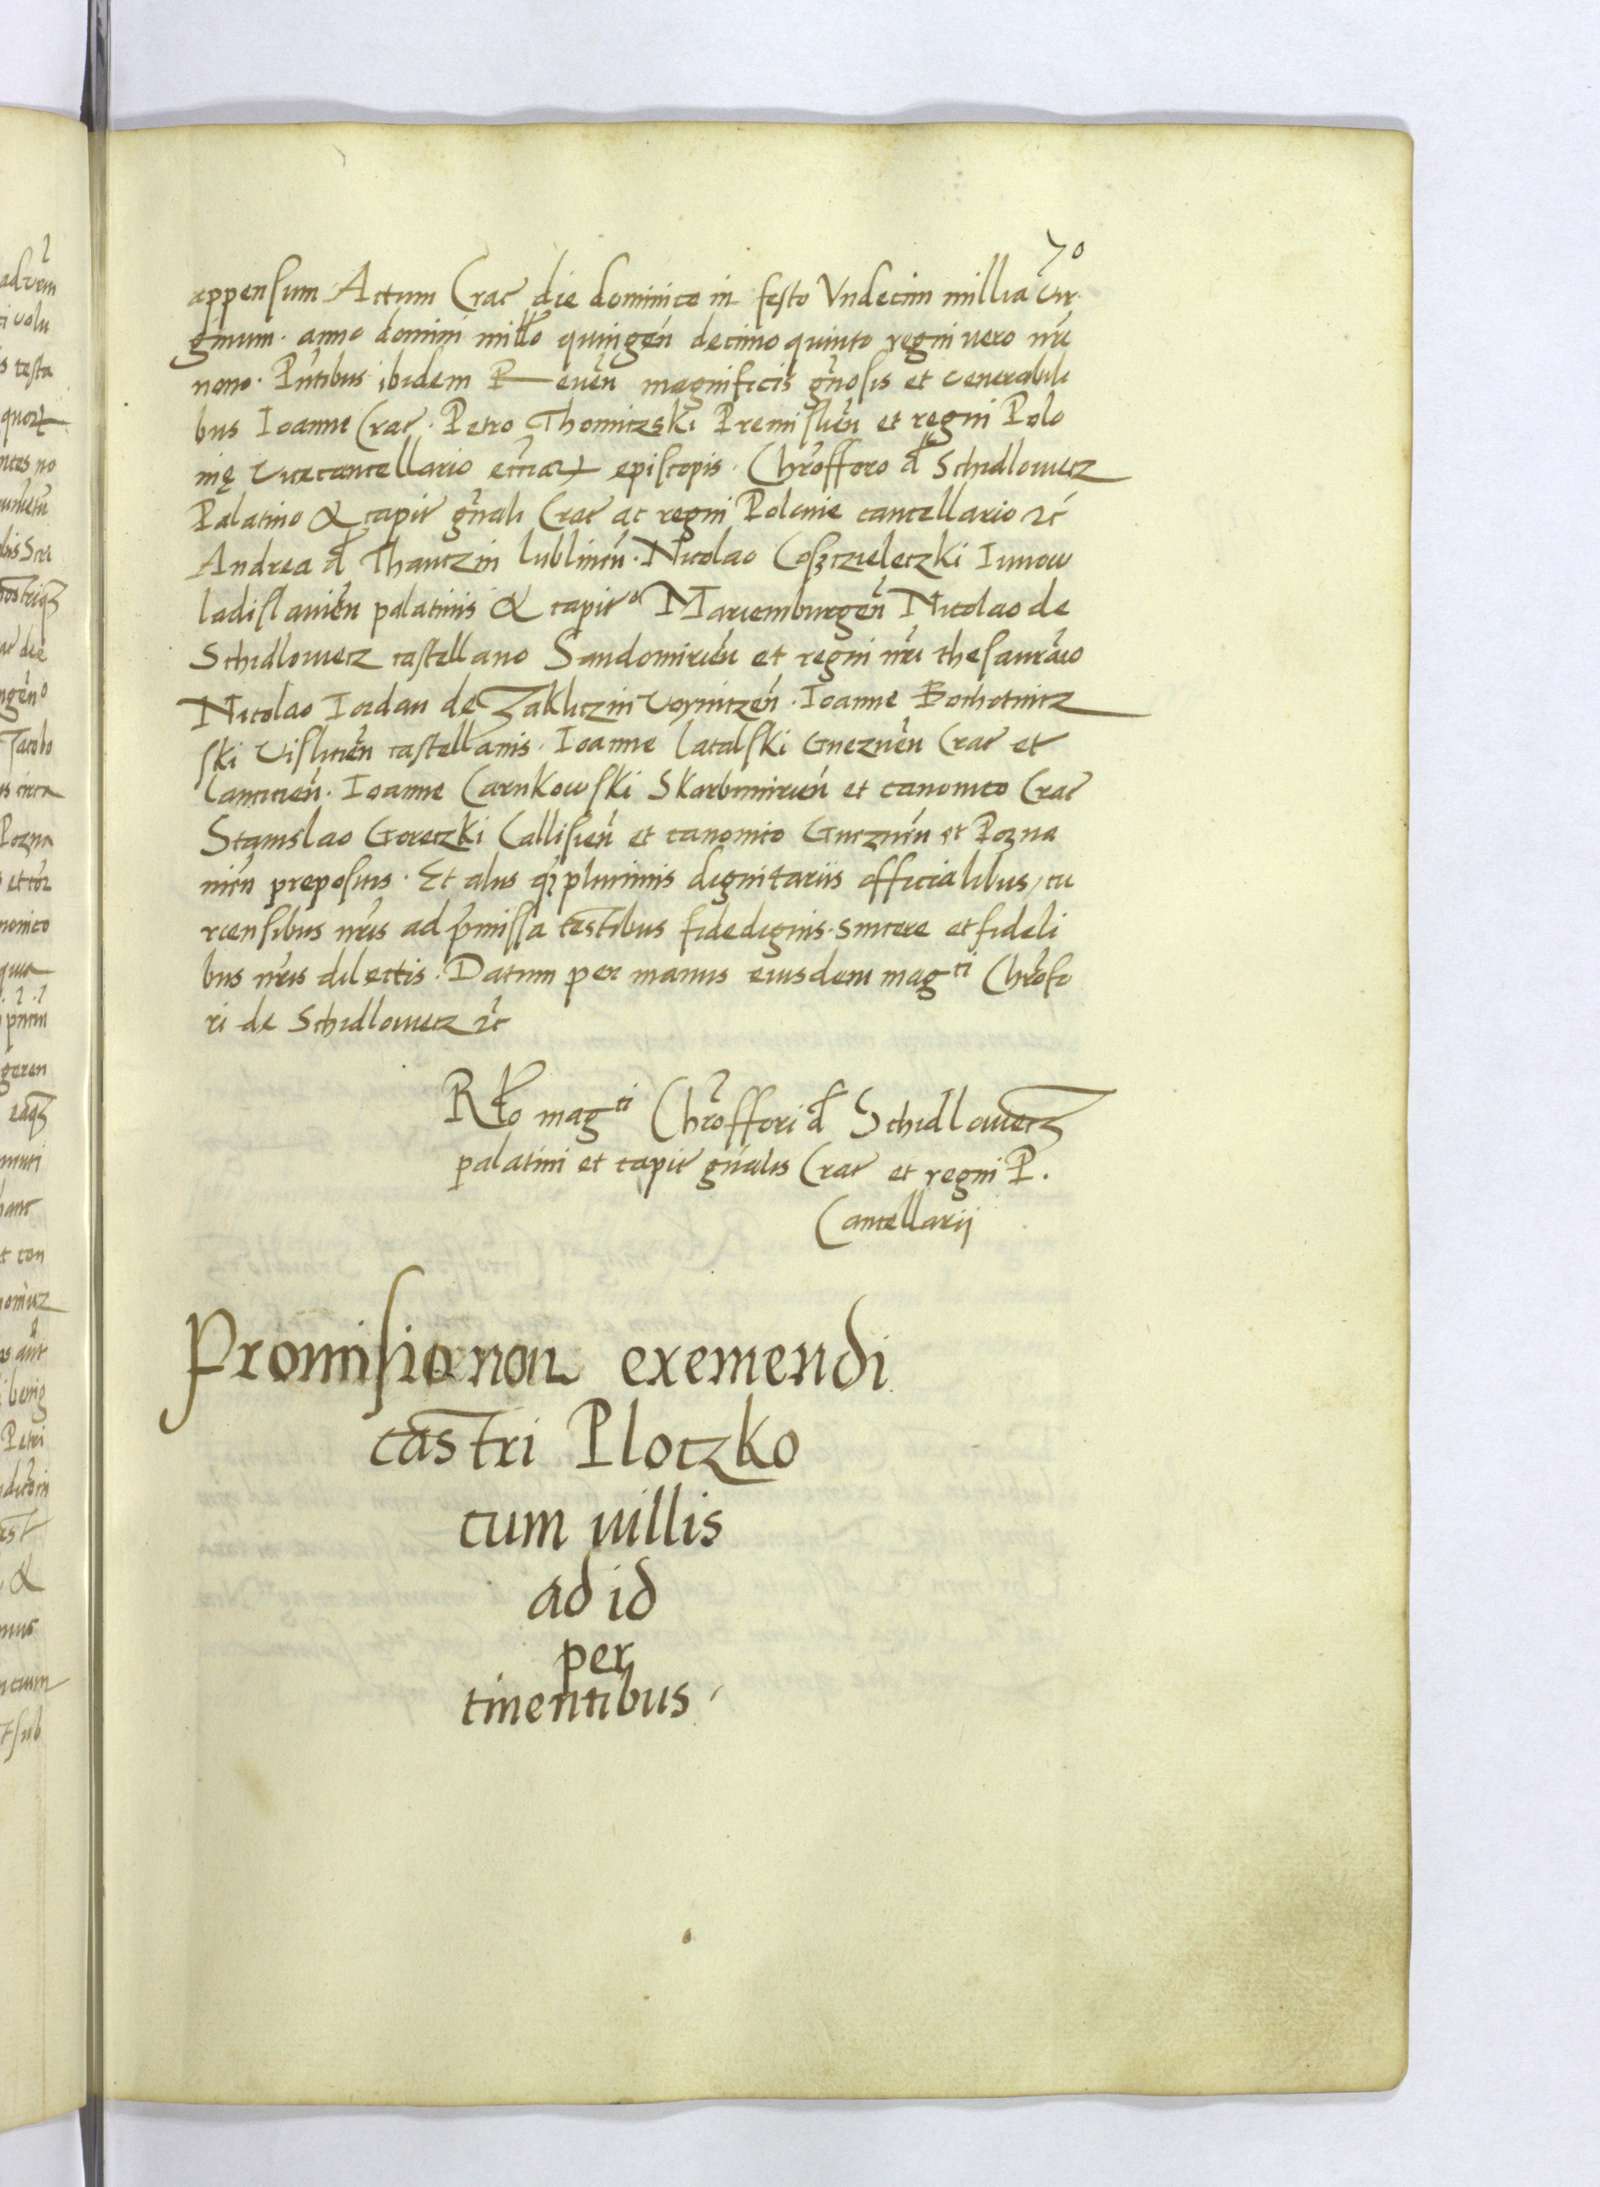 70
appensum Actum Crac die dominico in festo Undecim millia vir
ginum · anno domini millo quingen decimo quinto regni vero nri
nono · Pntibus ibidem Reven magnificis gnosis et venerabili
bus Ioanne Crac · Petro Thomitzski Premislien et regni Polo
nię Vicecancellario ecciar episcopis · Chroffero d Schidlowecz
Palatino & capit gnali Crac ac regni Polonie cancellario zc
Andrea d Thanczin lublinen · Nicolao Cosczieleczki Iuniow
ladislavien palatinis & capit Mariemburgen Nicolao de
Schidlowecz castellano Sandomirien et regni nri thesaurario
Nicolao Iordan de Zakliczin Voynitzen · Ioanne Bochotnicz
ski Vislicien castellanis · Ioanne latalski Gneznen Crac et
lancicien · Ioanne Carnkowski Skarbimirien et canonico Crac
Stanislao Goreczki Callisien et canonico Gneznen et Pozna
nien prepositis · Et aliis q plurimis dignitariis officialibus, cu
riensibus nris ad pmissa testibus fidedignis · sincere et fideli
bus nris dilectis · Datum per manus eiusdem mag ti Chrofo
ri de Schidlowecz zc
Rlo mag ti Chroffori d Schidlowecz
palatini et capit gnalis Crac et regni P.
Cancellarij
Promisio non exemendi
castri Ploczko
cum villis
ad id
per
tinentibus ·